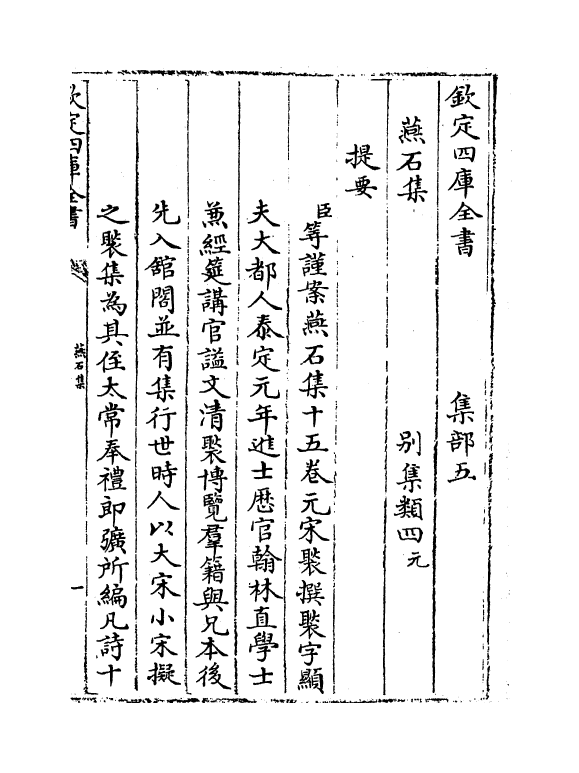 欽定四庫全書 集部五
燕石集 别集類四元
提要
臣等謹案燕石集十五卷元宋褧撰褧字顯
夫大都人泰定元年進士歴官翰林直學士
兼經筵講官謚文清褧博覽羣籍與兄本後
先入舘閣並有集行世時人以大宋小宋擬
之褧集為其侄太常奉禮郎彍所編凡詩十
欽定四庫全書
燕石集
一